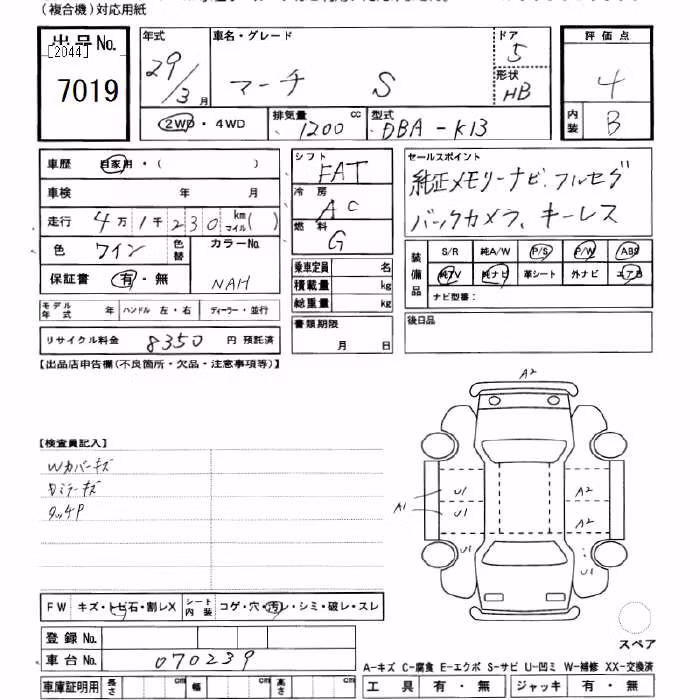 (複合機)対応用紙
出品No.
[2044]
7019
年式
29/3 月
車名・グレード
マーチ S
ドア
5
形状
HB
評価点
4
内装
B
2WD・4WD
排気量
1200 cc
型式
DBA-K13
車歴 自家用・( )
車検 年 月
走行 4万1千230 km マイル( )
色 ワイン 色替
カラーNo.
NAH
保証書 有・無
モデル年式 年 ハンドル 左・右 ディーラー・並行
リサイクル料金 8350 円 預託済
シフト
FAT
冷房
AC
燃料
G
乗車定員 名
積載量 kg
総重量 kg
書類期限
月 日
セールスポイント
純正メモリーナビ、フルセグ
バックカメラ、キーレス
装備品
S/R 純A/W P/S P/W ABS
純TV 純ナビ 革シート 外ナビ エアB
ナビ型番:
後日品
【出品店申告欄(不良箇所・欠品・注意事項等)】
【検査員記入】
Wカバーキズ
Dミラーキズ
タッチP
A2
A1
U1
U1
U1
A2
A2
U1
スペア
FW キズ・トビ石・割レX シート内装 コゲ・穴・汚レ・シミ・破レ・スレ
登録No.
車台No. 070239
車庫証明用 長さ cm 幅 cm 高さ cm
A-キズ C-腐食 E-エクボ S-サビ U-凹ミ W-補修 XX-交換済
工具 有・無 ジャッキ 有・無